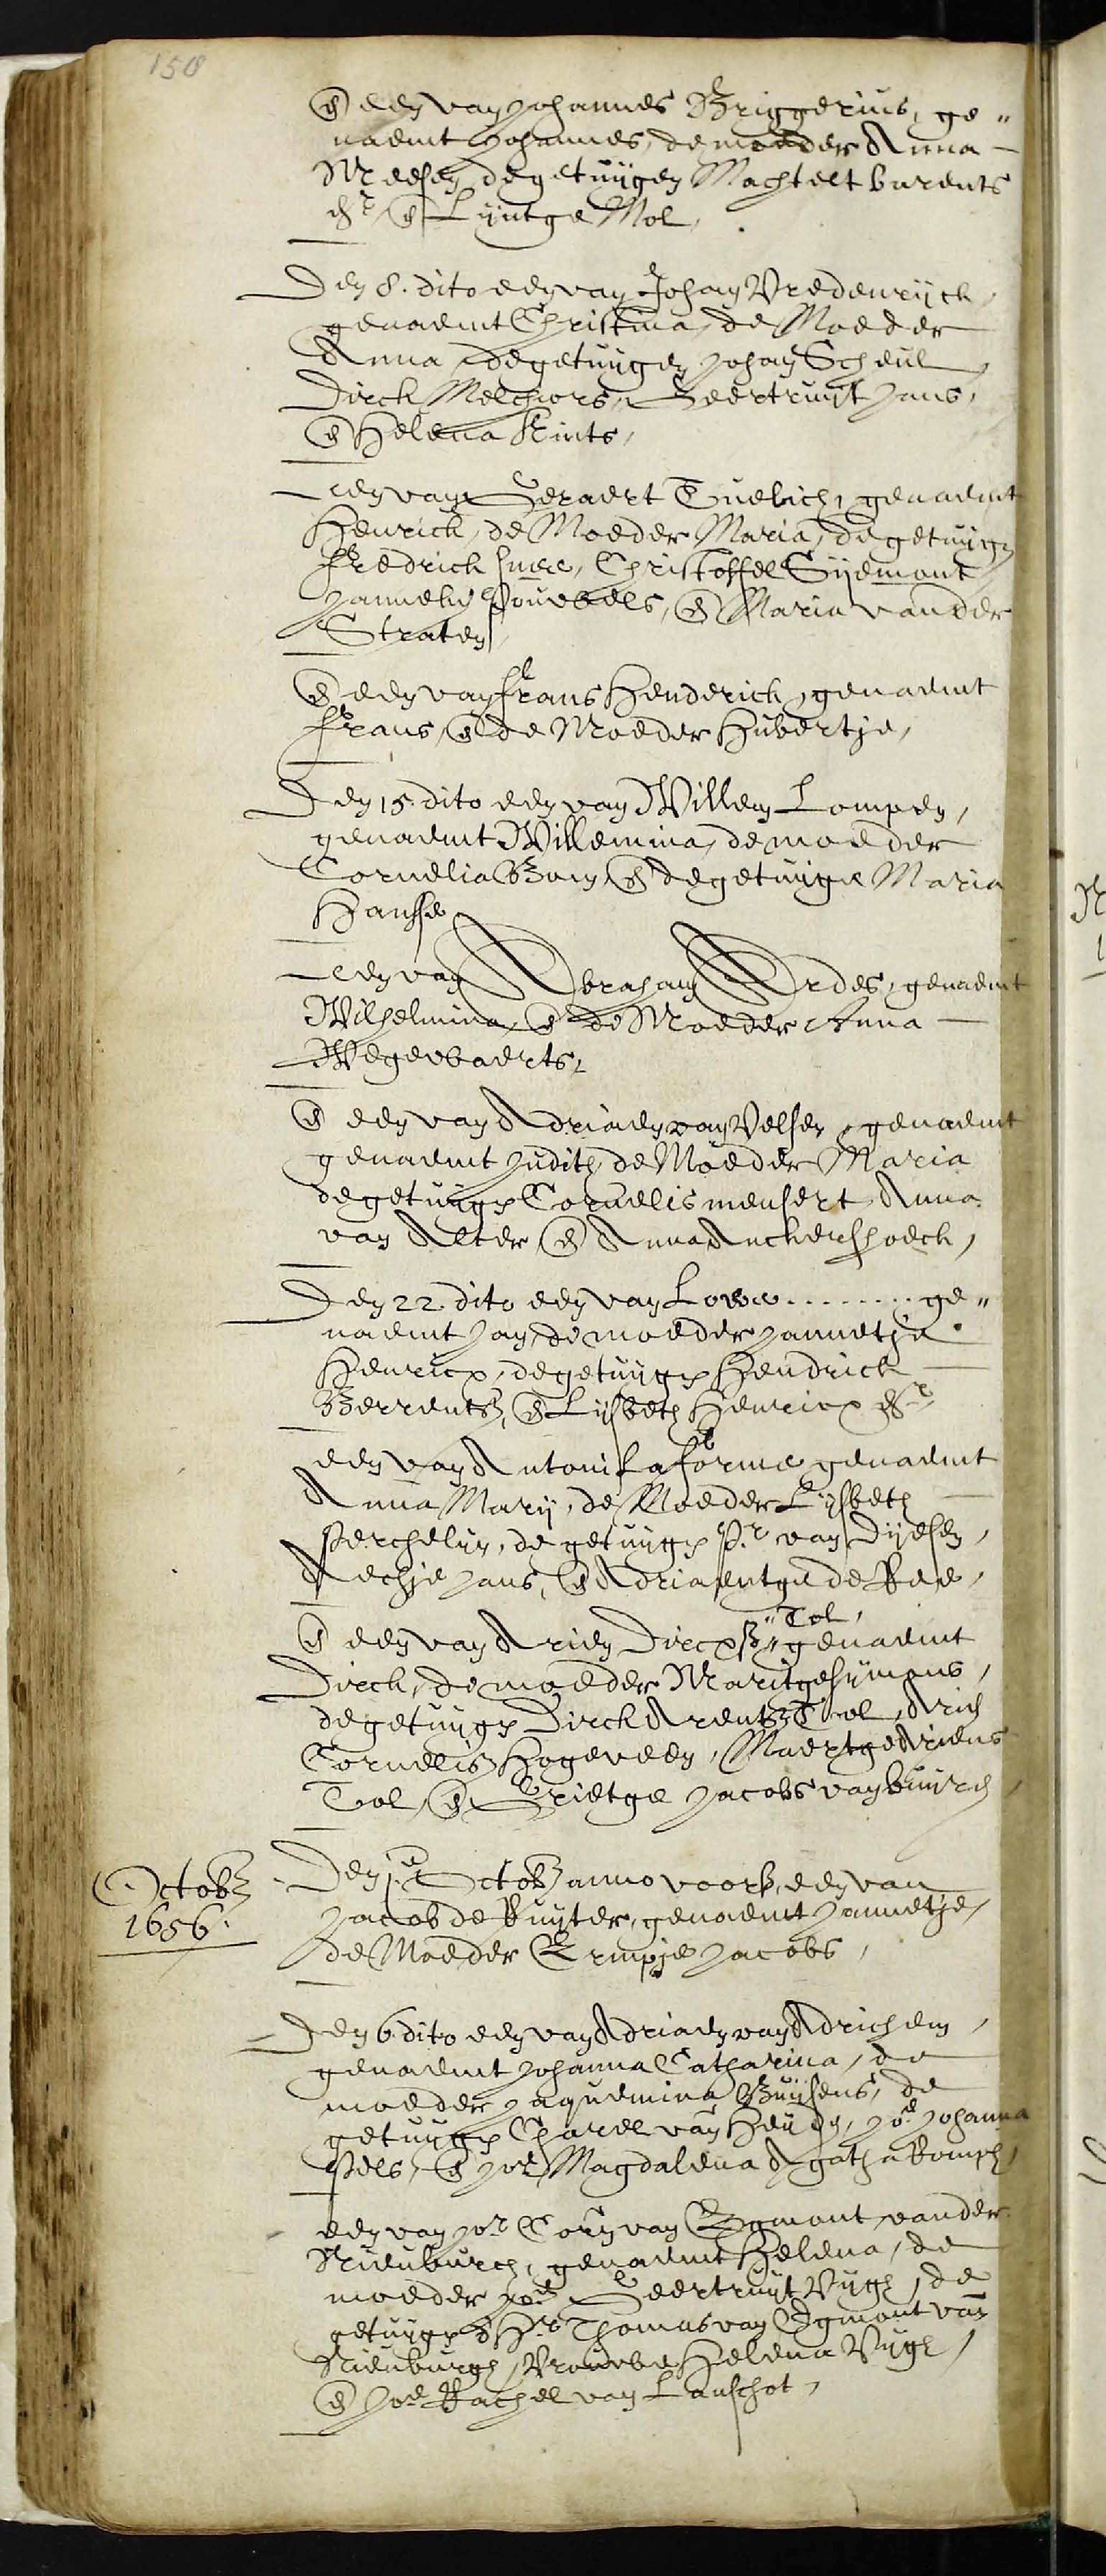 158
en een van Johannes Briggerius, ge"
naemt Johannes, de moeder Anna
Meesen, de getuijgen Machtelt barents
dr. en Lijntge Mol,
Den 8. dito een van Johan Vredenrijck,
genaemt Christina, de Moeder
Anna, de getuijgen Johan Scheul,
Dirck Melchiors, Geertruijt Jans,
en Helena Kints,
een van Geraert Tuebich, genaemt
Henrick, de Moeder Maria, de getuijgen
Fredrick Christoffel Sijemont
Janneke Pouwels, en Maria vander
Straten,
en een van Frans Henderick, genaemt
Frans, en de Moeder Hubertje,
Den 15. dito een van Willem Lompen,
genaemt Willemina, de moeder
Cornelia Bom, en de getuijge Maria
Hansse,
een van Abraham Ardes, genaemt
Wilhelmina, en de Moeder Anna
Wegewaerts,
en een van Adriaen van Velsen, genaemt
genaemt Judith, de Moeder Maria
de getuijgen Cornelis mensert, Anna
van Alter, en Anna Anckershoeck,
Den 22. dito een van Louw ......... ge"
naemt Jan, de moeder Jannetje
Henricx, de getuijgen Hendrick
Berrentsz, en Lijsbeth Henricx dr.
een van Antoni La forme genaemt
Anna Marij, de Moeder Lijsbeth
Perchelijn, de getuijgen Pr. van Dijesen,
Aechje Jans, en Adriaentge de Ree,
" Tol,
en een van Arien Dircxsz " genaemt
Dirck, de moeder Maritge Sijmons,
de getuijgen Dirck Arentsz Tol, Arien
Cornelisz Hogeveen, Maertge Ariens
Tol, en Grietge Jacobs van buijren
Octobr
1656.
Den 1.e Octobr anno voors. een van
Jacob de Ruijter, genaemt Jannetje,
de Moeder Ermpje Jacobs,
Den 6. dito een van Adriaen van Adrichem,
genaemt Johanna Catharina, de
moeder Jaquemina Buijsens, de
getuijgen Charel van Heijden, Jor. Johanna
Pels, en Jor. Magdalena Agatha Romph,
een van Jor. Corn. van Egmont vander
Nieuburch, genaemt Helena, de
moeder Jor. Geertruijt Vijgh, de
getuijgen d'Hr. Thomas van Egmont van
Nieuburgh, Vrouwe Helena Vijgh,
en Jor. Rachel van Lanschot,